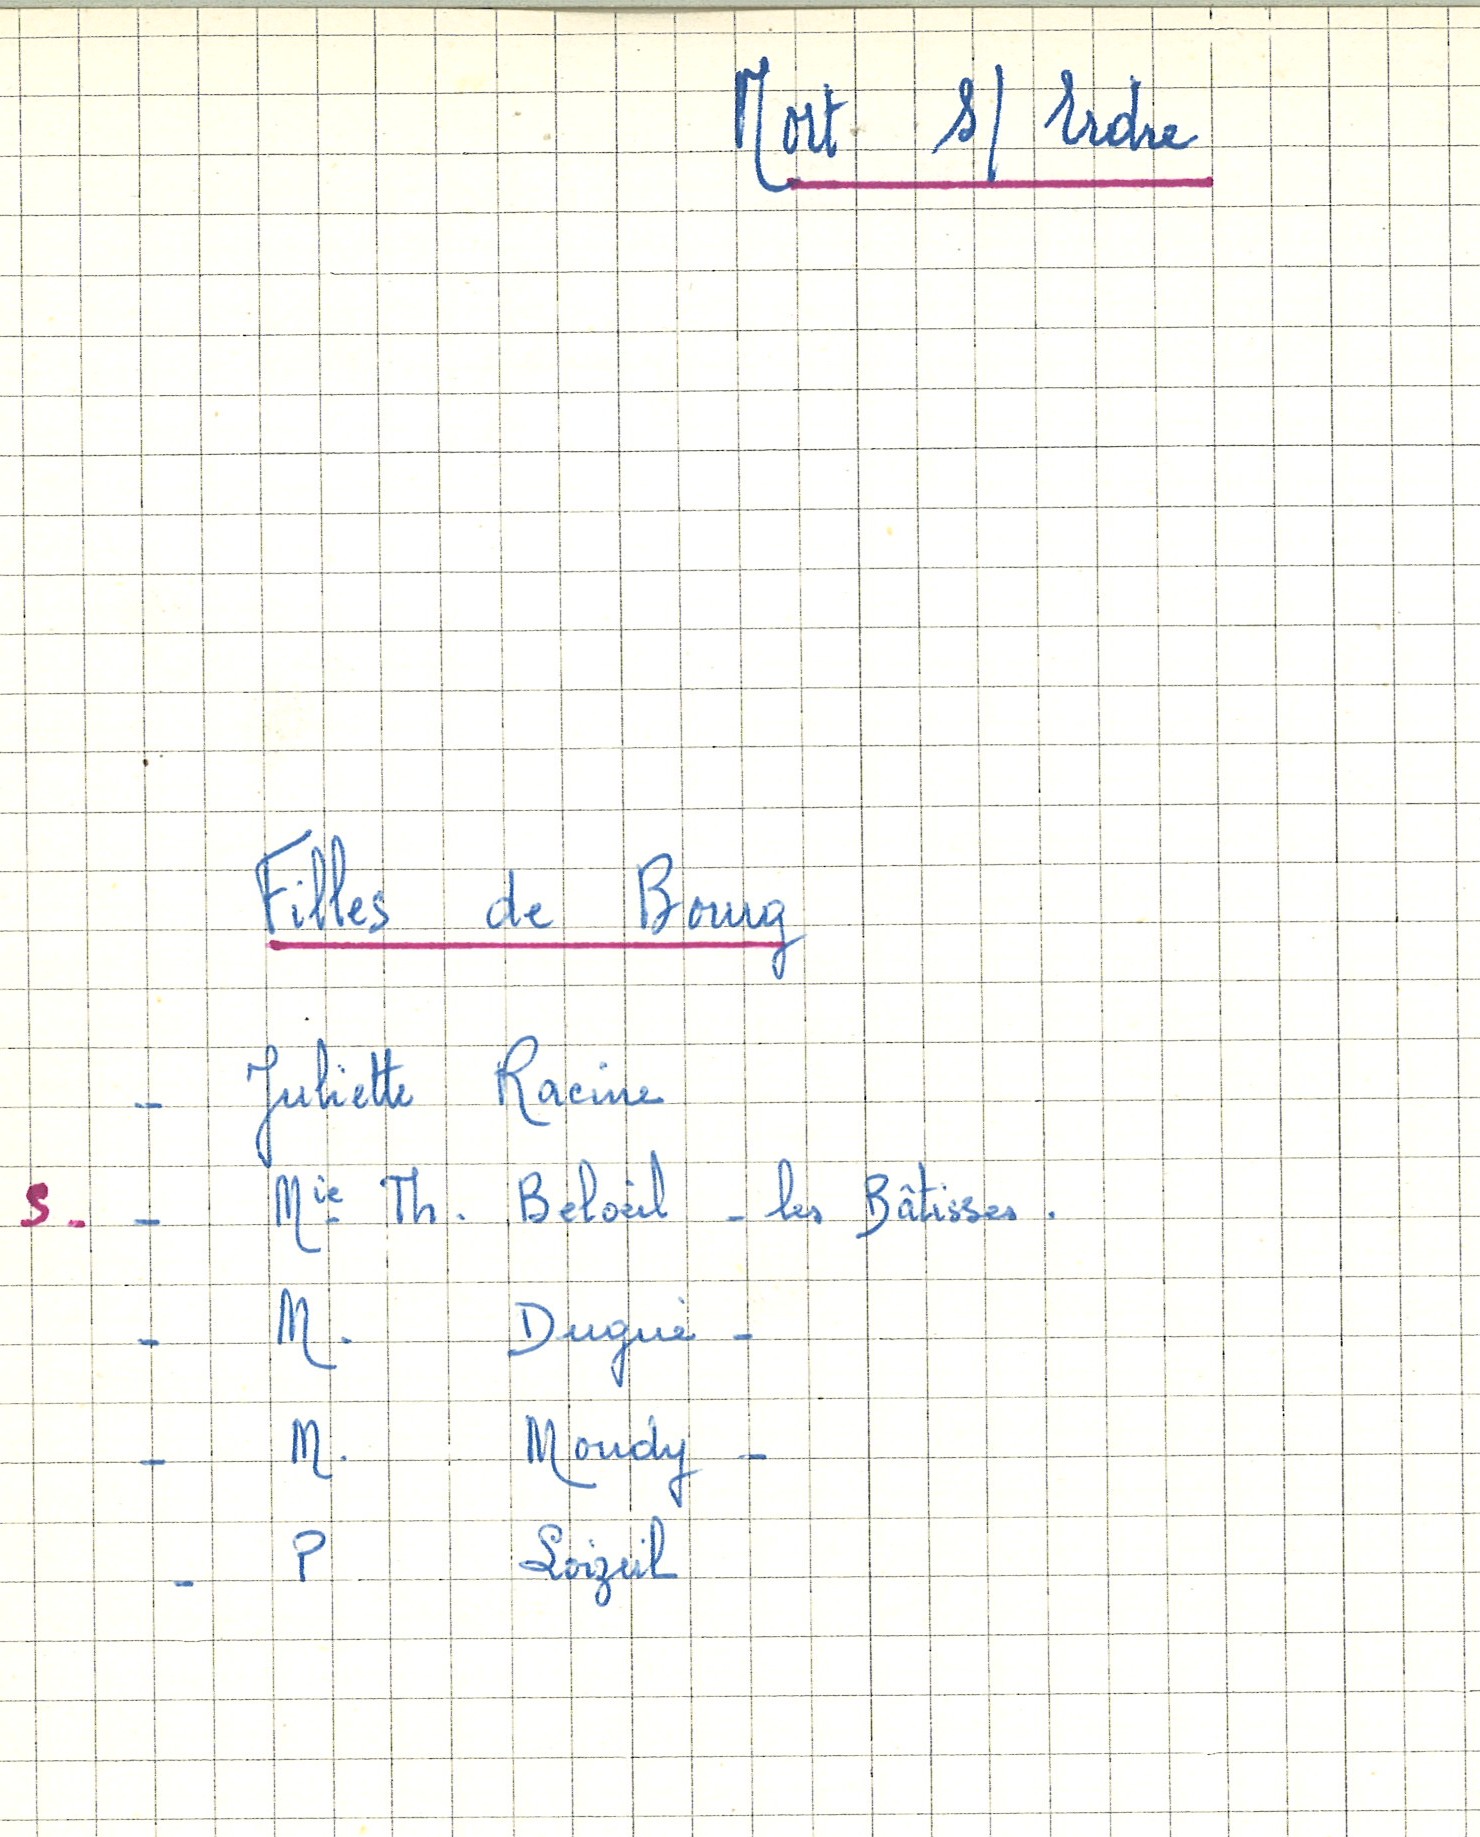 Nort s/ Erdre
Filles de Bourg
- Juliette Racine
S. - Mie Th. Beloeil - les Bâtisses.
- M. Dugué -
- M. Moudy -
- P Loizeil